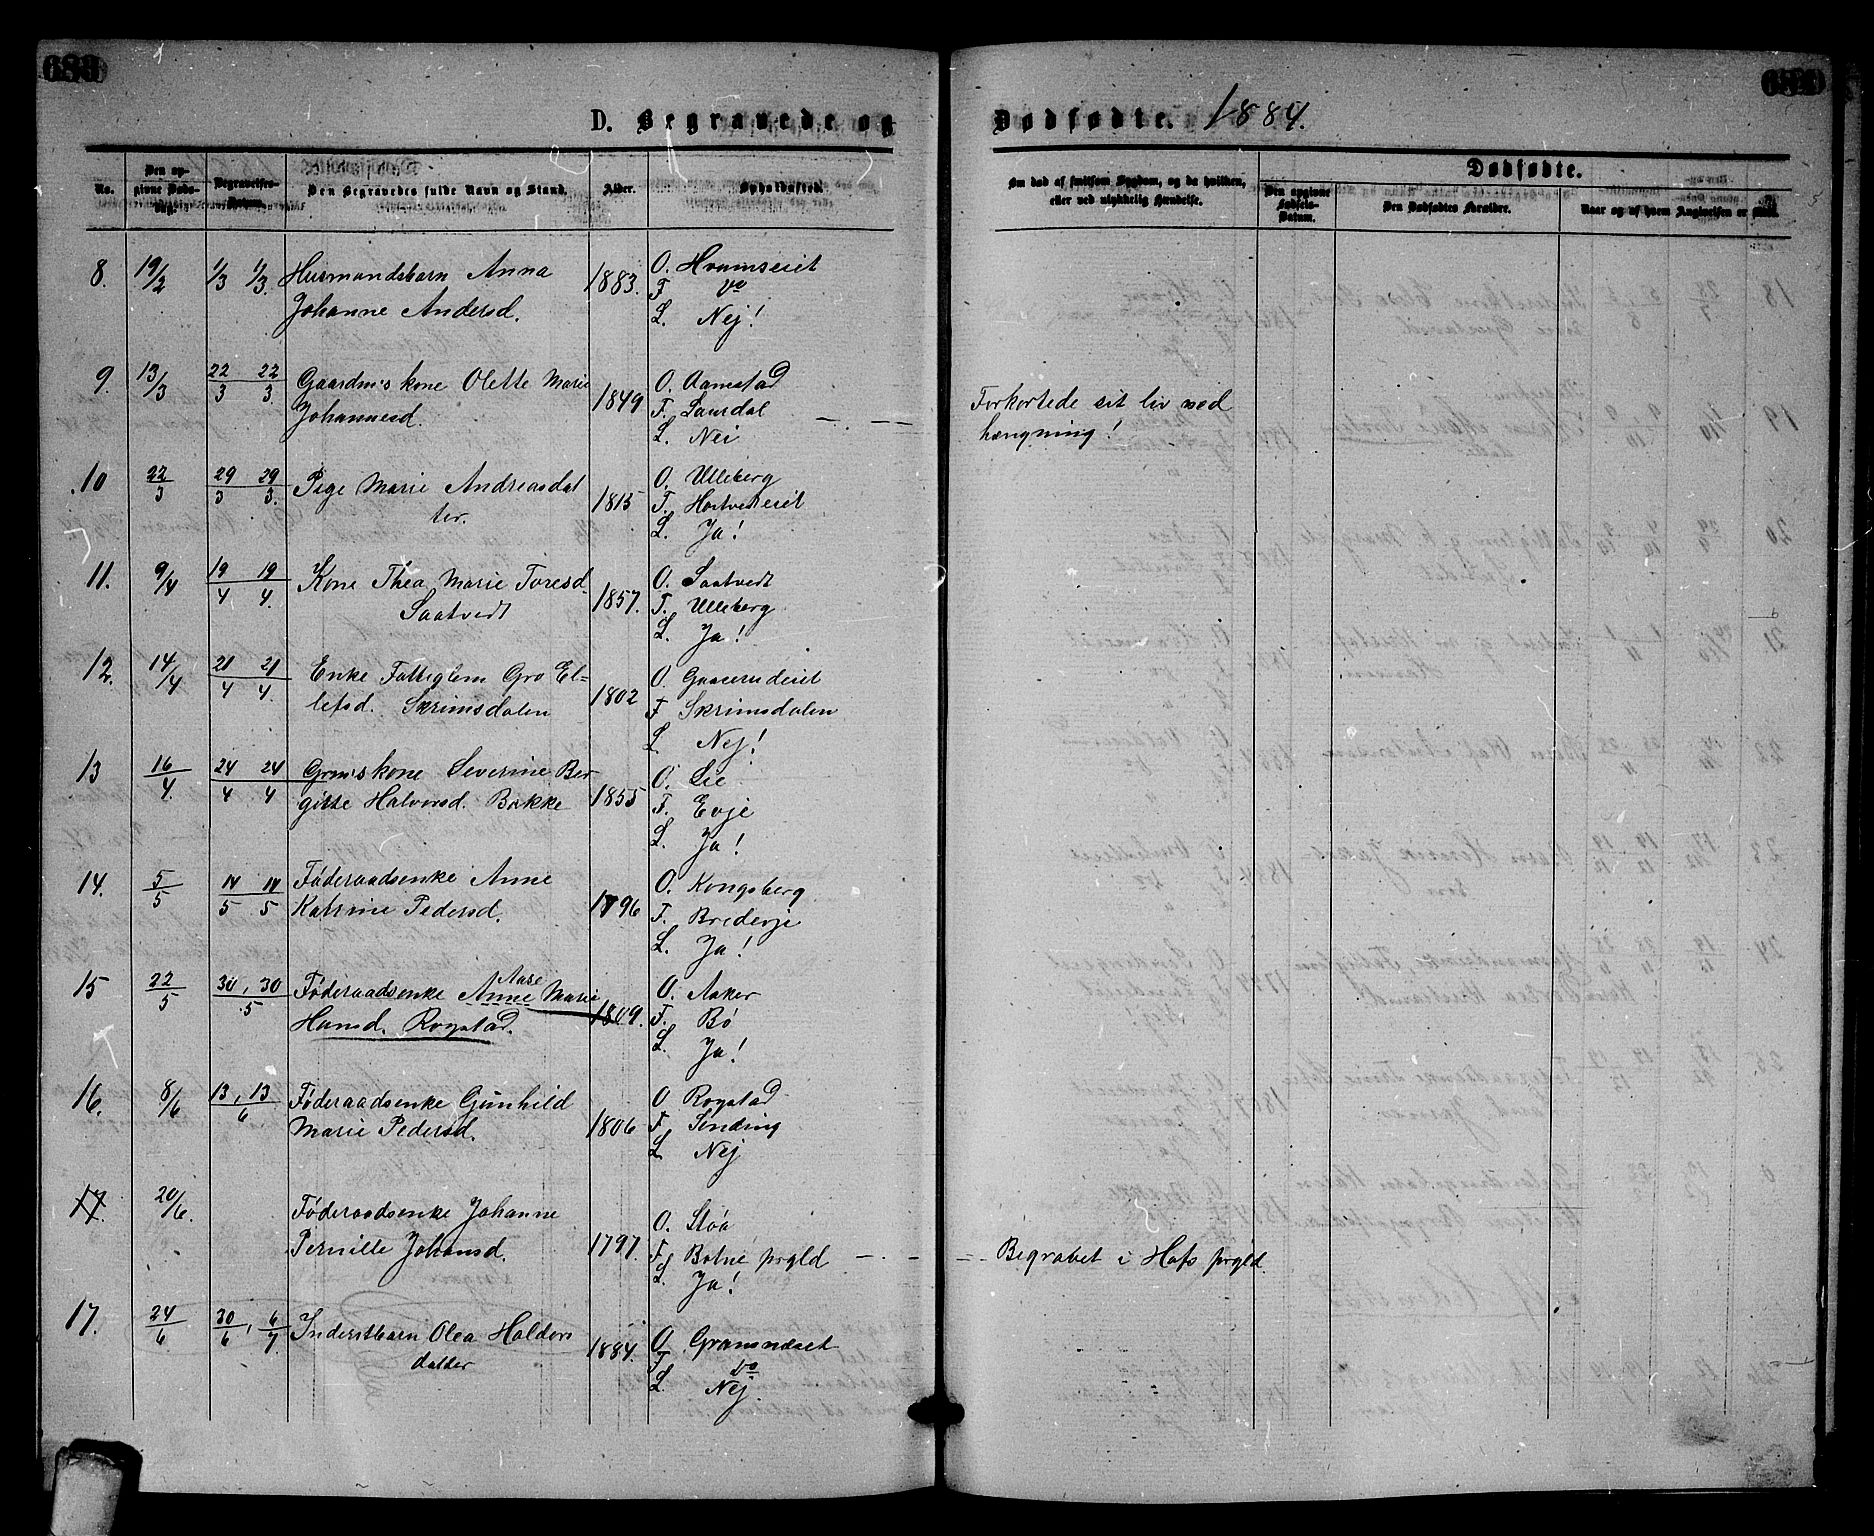 683
684
D. Begravede og
Dødfødte. 1884.
No.
Den op-
givne Døds-
Dag.
Begravelses-
Datum.
Den Begravedes fulde Navn og Stand.
Alder.
Opholdssted.
Om død af smitsom Sygdom, og da hvilken,
eller ved ulykkelig Hændelse.
Dødfødte.
Den opgivne
Fødsels-
Datum.
Den Dødfødtes Forældre.
Naar og af hvem Angivelsen er skeet.
8. 19/2 1/3 1/3. Husmandsbarn Anna
Johanne Andersd.
1883.
O. Hvamseiet
F do
L. Nej!
9. 13/3 22/3 22/3. Gaardm's kone Olette Marie
Johannesd.
1849
O. Aamestad
F. Laurdal
L. Nei
Forkortede sit liv ved
hængning!
10 22/3 29/3 29/3. Pige Marie Andreasdat
ter.
1815
O. Ulleberg
F. Hostvedteiet
L. Ja!
11. 9/4 19/4 19/4. Kone Thea Marie Toresd.
Saatvedt
1857.
O. Saatvedt
F. Ulleberg
L. Ja!
12. 14/4 21/4 21/4. Enke Fattiglem Gro El-
lefsd. Skrimsdalen
1802
O. Gaaserudeiet
F Skrimsdalen
L. Nej!
13 16/4. 24/4 24/4 Grm's kone Severine Ber-
gitte Halvorsd. Bakke
1855
O. Lie
F. Evje
L. Ja!
14. 5/5 14/5 14/5 Føderaadsenke Anne
Katrine Pedersd.
1796
O. Kongsberg
F. Bredevje
L. Ja!
15 22/5 30, 30/5 Føderaadsenke Anne Marie
Aase
Hansd. Rogstad.
1809.
O. Aaker
F. Bø
L. Ja!
16. 8/6 13, 13/6 Føderaadsenke Gunhild
Marie Pedersd.
1806
O Rogstad
F. Sending
L Nej
17. 20/6. Føderaadsenke Johanne
Pernille Johansd.
1797.
O. Støa
F. Botne prgld
L. Ja!
Begravet i Hofs prgld.
17. 24/6 30/6, 6/7 Inderstbarn Olea Haldors
datter
1884.
O. Gramsnæset
F. do
L. Nej